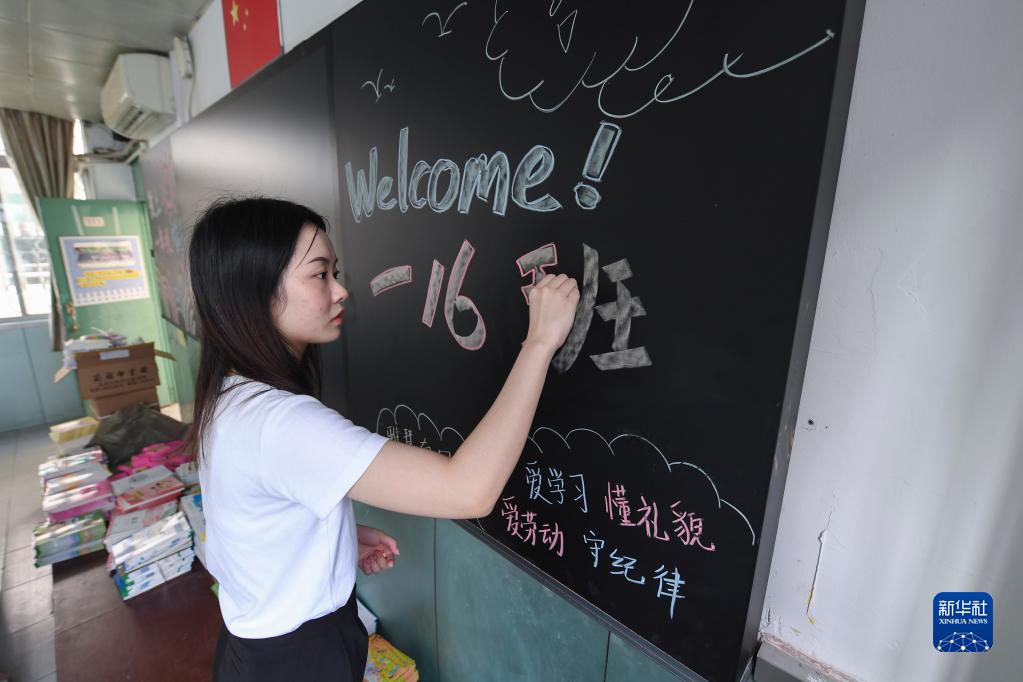 Welcome!
一16班
爱学习
懂礼貌
爱劳动
守纪律
新华社
XINHUA NEWS